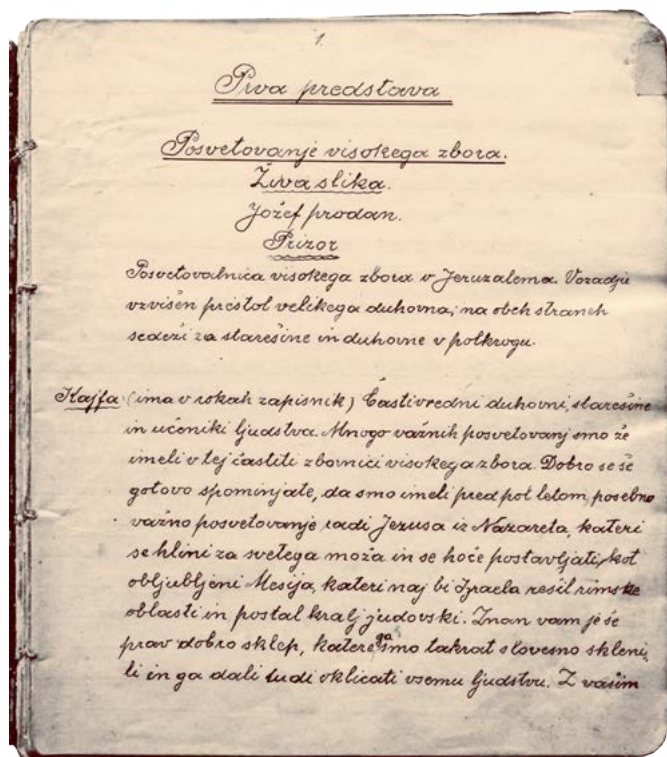 1.
Prva predstava
Posvetovanje visokega zbora.
Živa slika.
Jožef prodan.
Prizor
Posvetovalnica visokega zbora v Jeruzalema. Vozadju
vzvišen pristol velikega duhovna; na obeh straneh
sedeži za starešine in duhovne v polkrogu.
Kajfa (ima v rokah zapisnik) Častivredni duhovni, starešine
in učeniki ljudstva. Mnogo važnih posvetovanj smo že
imeli v tej častiti zbornici visokega zbora. Dobro se še
gotovo spominjate, da smo imeli pred pol letom posebno
važno posvetovanje radi Jezusa iz Nazareta, kateri
se hlini za svetega moža in se hoče postavljati kot
obljubljeni Mesija, kateri naj bi Izraela rešil rimske
oblasti in postal kralj judovski. Znan vam je še
prav dobro sklep, katerega smo takrat slovesno skleni,
li in ga dali tudi oklicati vsemu ljudstvu. Z vašim